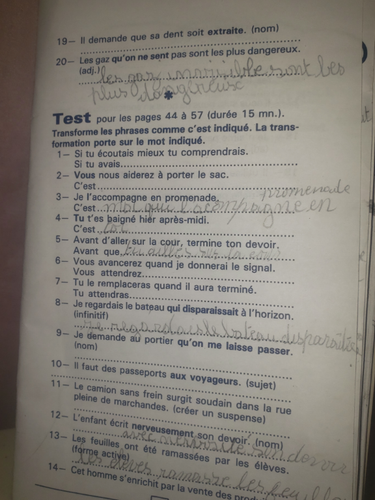 19– Il demande que sa dent soit extraite. (nom)
20– Les gaz qu'on ne sent pas sont les plus dangereux.
(adj.)
les gaz sont les
plus dangereuse
*
Test pour les pages 44 à 57 (durée 15 mn.).
Transforme les phrases comme c'est indiqué. La trans-
formation porte sur le mot indiqué.
1– Si tu écoutais mieux tu comprendrais.
Si tu avais
2– Vous nous aiderez à porter le sac.
C'est
3– Je l'accompagne en promenade.
promenade
C'est moi qui l'accompagne en
4– Tu t'es baigné hier après-midi.
C'est toi
5– Avant d'aller sur la cour, termine ton devoir.
Avant que tu ailles sur la cour
6– Vous avancerez quand je donnerai le signal.
Vous attendrez
7– Tu le remplaceras quand il aura terminé.
Tu attendras
8– Je regardais le bateau qui disparaissait à l'horizon.
(infinitif)
regardais le bateau disparaître
9– Je demande au portier qu'on me laisse passer.
(nom)
10– Il faut des passeports aux voyageurs. (sujet)
11– Le camion sans frein surgit soudain dans la rue
pleine de marchandes. (créer un suspense)
12– L'enfant écrit nerveusement son devoir. (nom)
avec son devoir
13– Les feuilles ont été ramassées par les élèves.
(forme active)
les élèves
14– Cet homme s'enrichit par la vente des